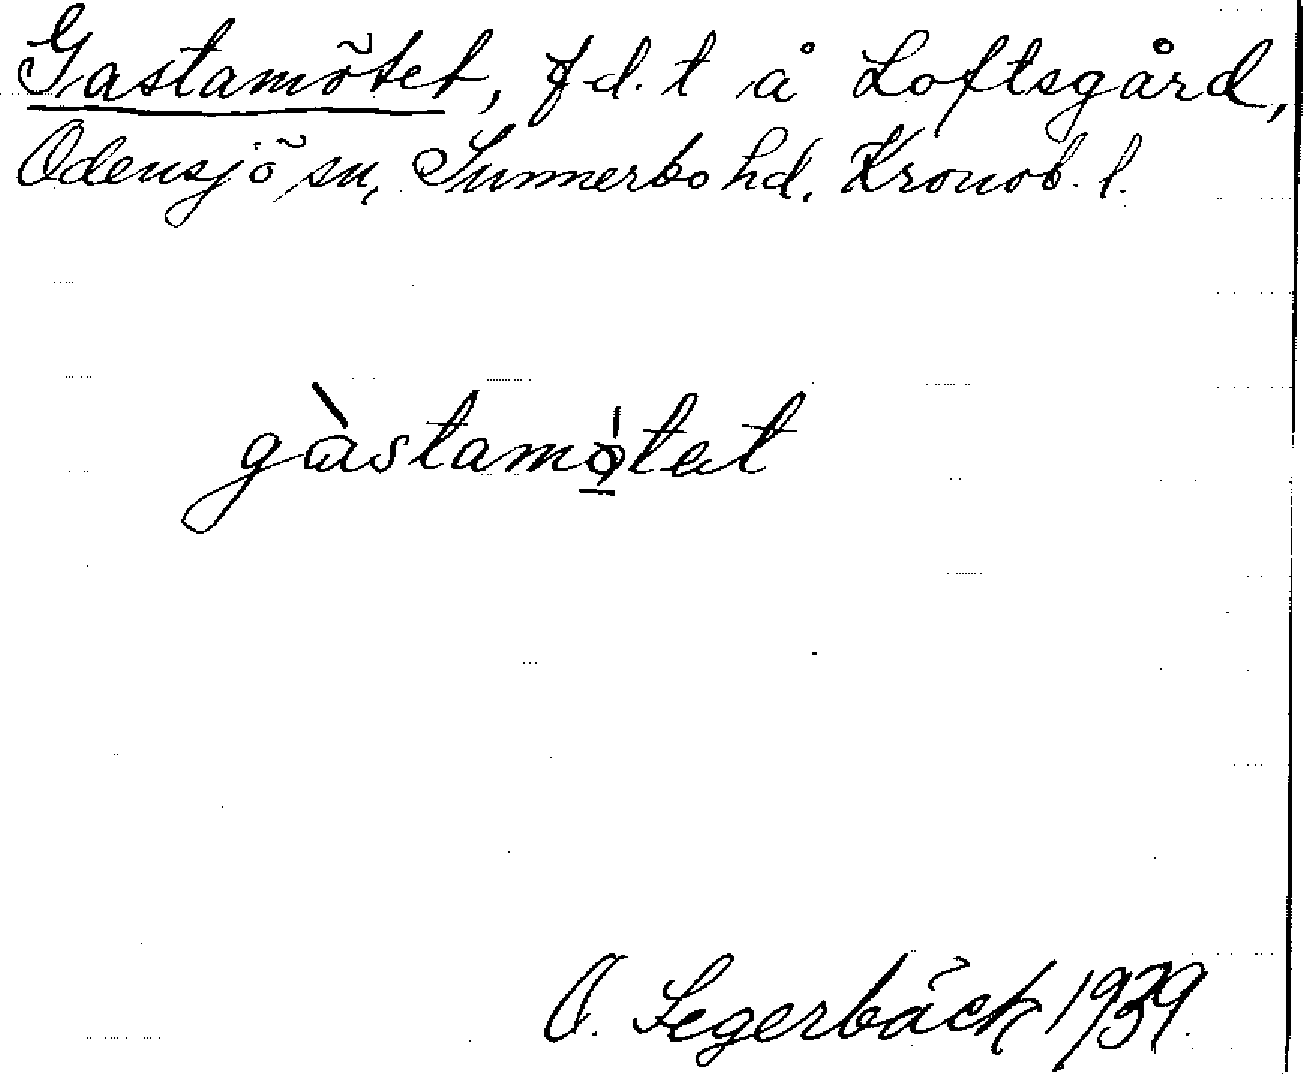 Gastamötet, f d. t å Loftsgård,
Odensjö sn, Sunnerbo hd. Kronob. l.
gàstamǫ́tat
O. Segerbäck 1939.